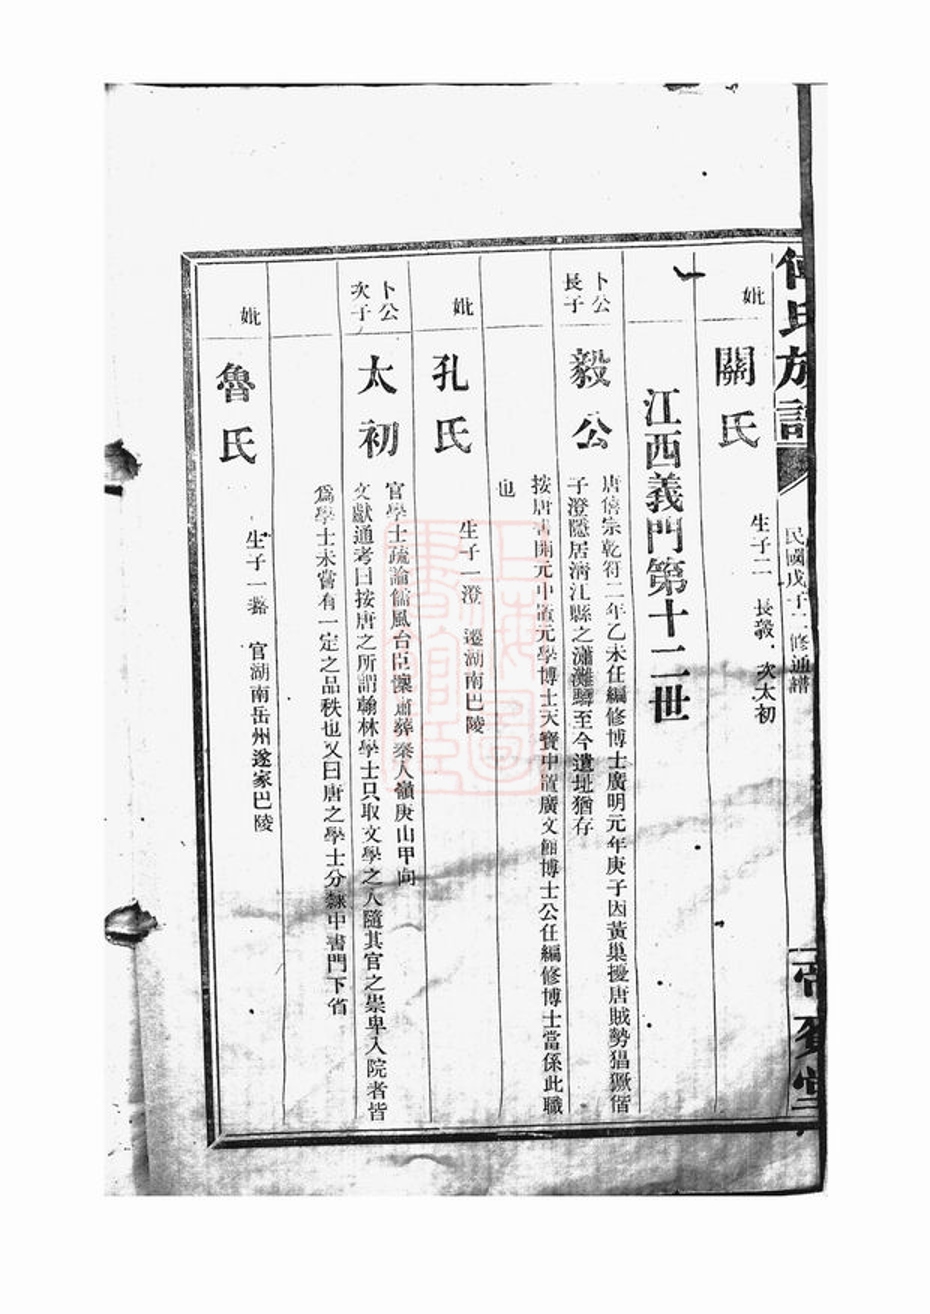 何氏族譜
民國戊子二修通譜
妣
關氏
生子二 長毅 次太初
江西義門第十二世
卜公
長子
毅公
唐僖宗乾符二年乙未任編修博士廣明元年庚子因黃巢擾唐賊勢猖獗偕
子澄隱居淸江縣之瀟灘驛至今遺址猶存
按唐書開元中置元學博士天寶中置廣文館博士公任編修博士當係此職
也
妣
孔氏
生子一澄 遷湖南巴陵
卜公
次子
太初
官學士疏論儒風台臣懷肅葬秦人嶺庚山甲向
文獻通考曰按唐之所謂翰林學士只取文學之人隨其官之崇卑入院者皆
爲學士未嘗有一定之品秩也又曰唐之學士分隸中書門下省
妣
魯氏
生子一潞 官湖南岳州遂家巴陵
上海圖書館藏